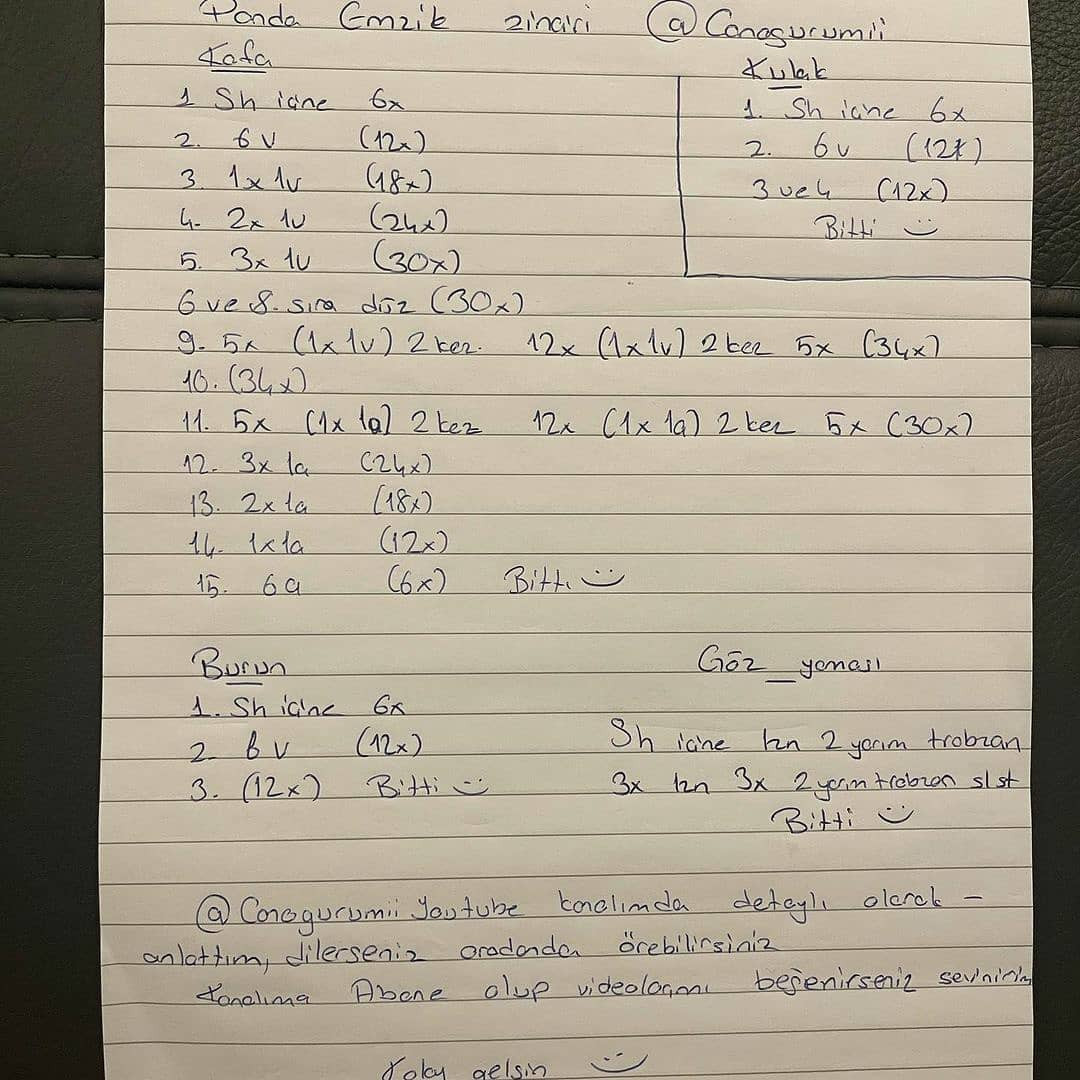 Panda Emzik zinciri @Canogurumii
Kafa
1 Sh içine 6x
2. 6 v (12x)
3. 1x 1v (18x)
4- 2x 1v (24x)
5. 3x 1v (30x)
6 ve 8. sıra düz (30x)
9- 5x (1x1v) 2 kez. 12x (1x1v) 2 kez 5x (34x)
10. (34x)
11. 5x (1x 1a) 2 kez 12x (1x 1a) 2 kez 5x (30x)
12- 3x 1a (24x)
13. 2x 1a (18x)
14- 1x1a (12x)
15. 6a (6x) Bitti :)
Kulak
1. Sh içine 6x
2. 6v (12x)
3 ve 4 (12x)
Bitti :)
Burun
1. Sh içine 6x
2- 6 v (12x)
3. (12x) Bitti :)
Göz _ yaması
Sh içine 2 yarım trabzan
3x 3x 2 yarım trabzan slst
Bitti :)
@Canogurumii Youtube kanalımda detaylı olarak -
anlattım, dilerseniz oradanda örebilirsiniz
Kanalıma Abone olup videolarımı beğenirseniz sevinirim
Kolay gelsin :)